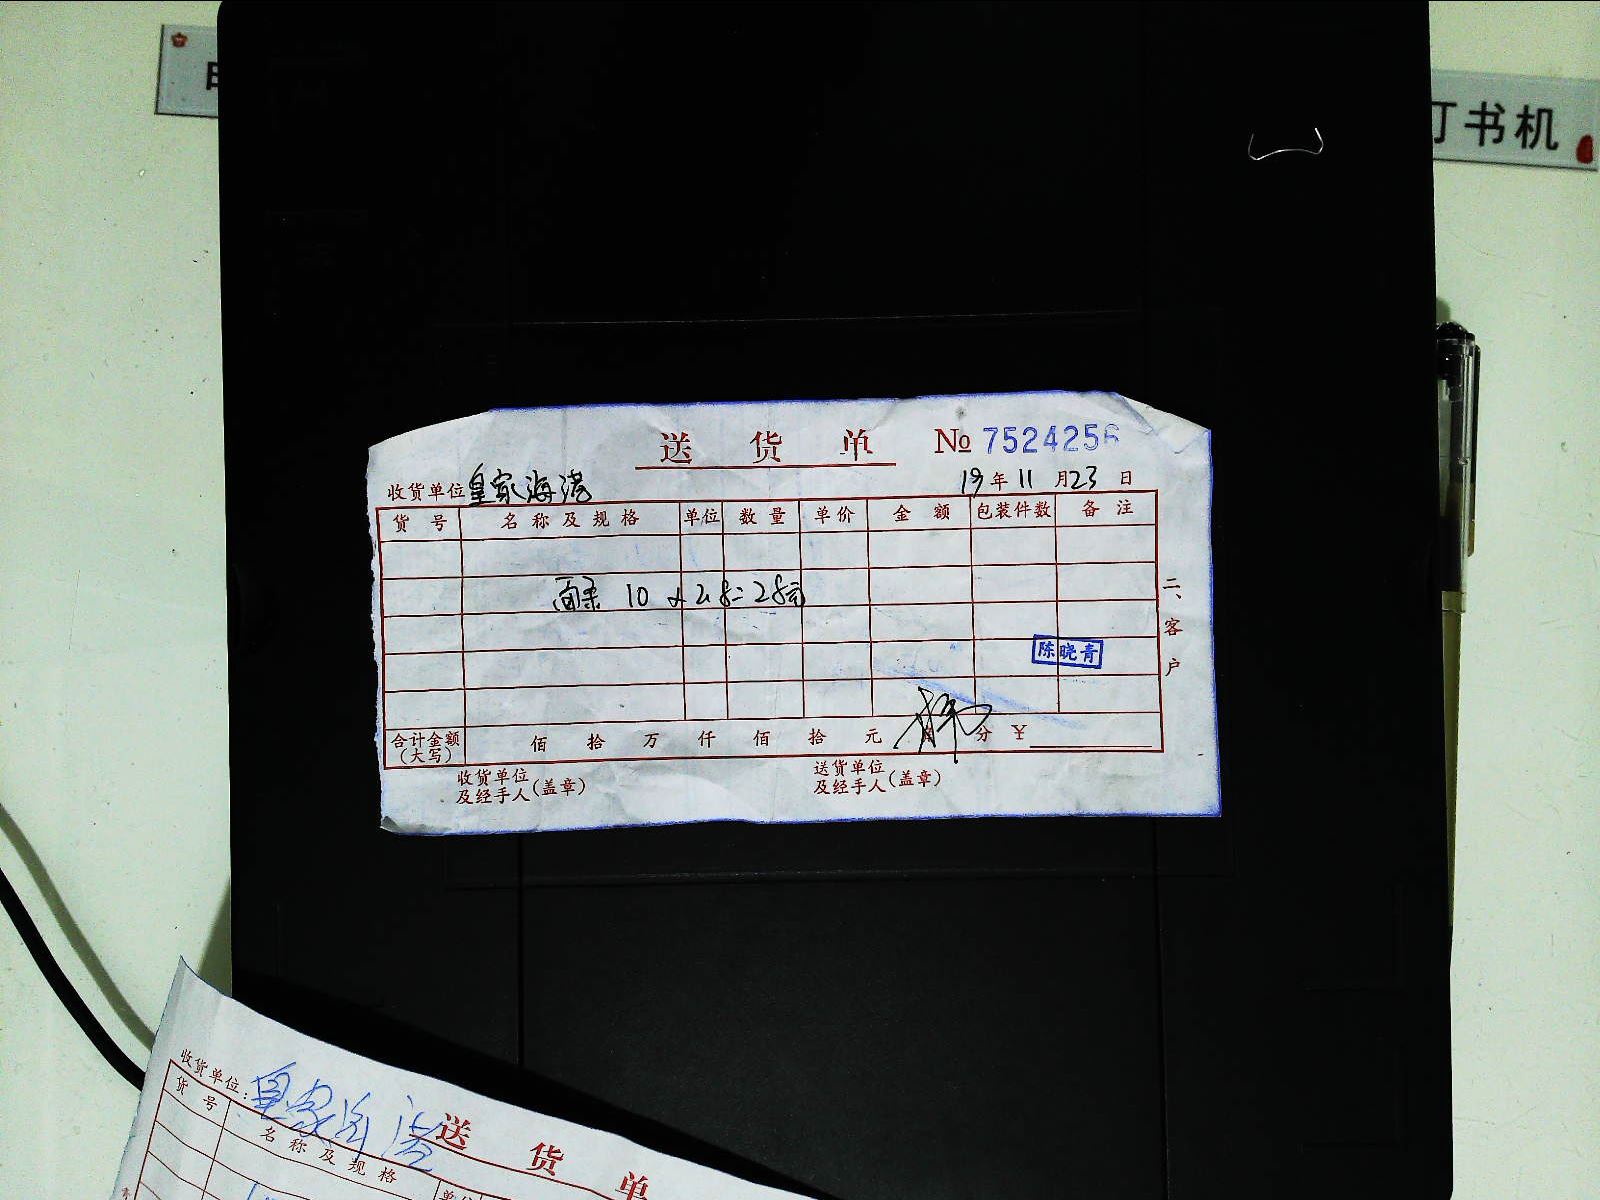 订书机
送货单 № 7524256
收货单位 皇家海湾 19年11月23日
货号 名称及规格 单位 数量 单价 金额 包装件数 备注
10 × 2.8=28元
二、客户
陈晓青
合计金额(大写) 佰 拾 万 仟 佰 拾 元 分 ¥
收货单位及经手人(盖章) 送货单位及经手人(盖章)
送货单
收货单位: 皇家海湾
货号 名称及规格 单位